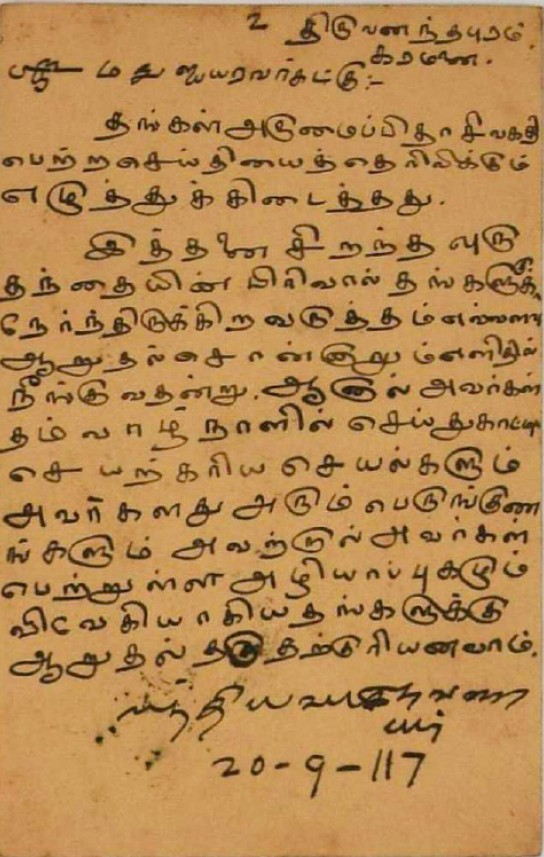 2 திருவனந்தபுரம்.
கரமனை.
ம து ஐயரவர்கட்கு:-
தங்கள் அருமைப்பிதா சிவகதி
பெற்ற செய்தியைத் தெரிவிக்கும்
எழுத்துக் கிடைத்தது.
இத்தனை சிறந்த வொரு
தந்தையின் பிரிவால் தங்களுக்கு
நேர்ந்திருக்கிற வருத்தம் எவ்வளவு
ஆறுதல் சொன்னாலும் எளிதில்
நீங்குவதன்று. ஆனால் அவர்கள்
தம் வாழ்நாளில் செய்துகாட்டிய
செயற்கரிய செயல்களும்
அவர்களது அரும் பெருங்குண
ங்களும் அவற்றால் அவர்கள்
பெற்றுள்ள அழியாப்புகழும்
விவேகியாகிய தங்களுக்கு
ஆறுதல் தருதற்குரியனவாம்.
20-9-117